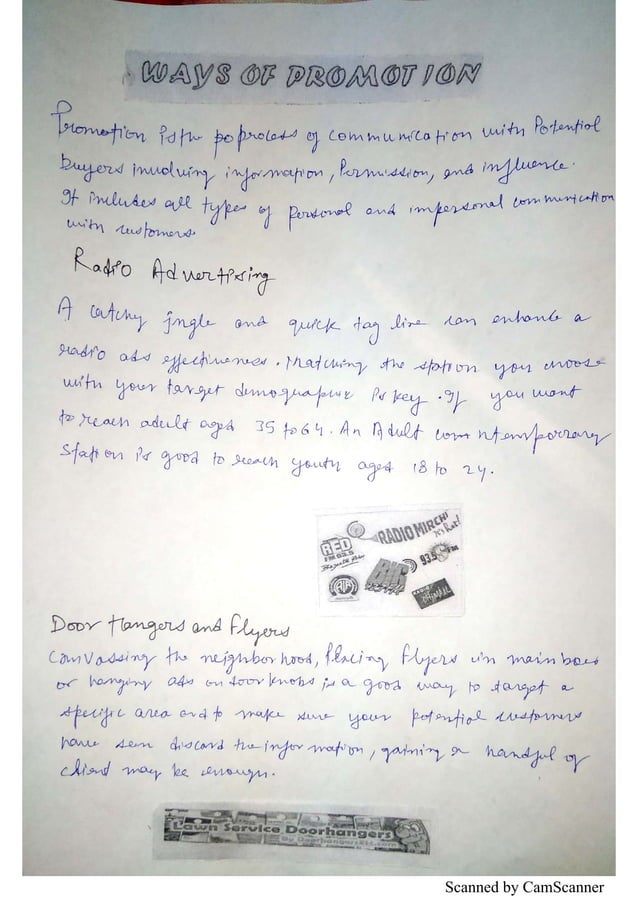 WAYS OF PROMOTION
Promotion is the po process of communication with Potential
buyers involving information, Permission, and influence.
It includes all types of personal and impersonal communication
with customers
Radio Advertising
A catchy jngle and quick tag line can enhance a
radio ads effectiveness. Matching the station you choose
with your target demographic is key. If you want
to reach adult aged 35 to 64. An Adult contemporary
Station is good to reach youth aged 18 to 24.
RADIO MIRCHI
It's Hot!
RED
FM 93.5
93.5 FM
BIG
RADIO
Door Hangers and Flyers
Canvassing the neighborhood, Placing flyers in main boxes
or hanging ads on door knobs is a good way to target a
specific area and to make sure your potential customers
have seen discard the information, gaining a handful of
client may be enough.
Lawn Service Doorhangers
by DoorhangersEtc.com
Scanned by CamScanner